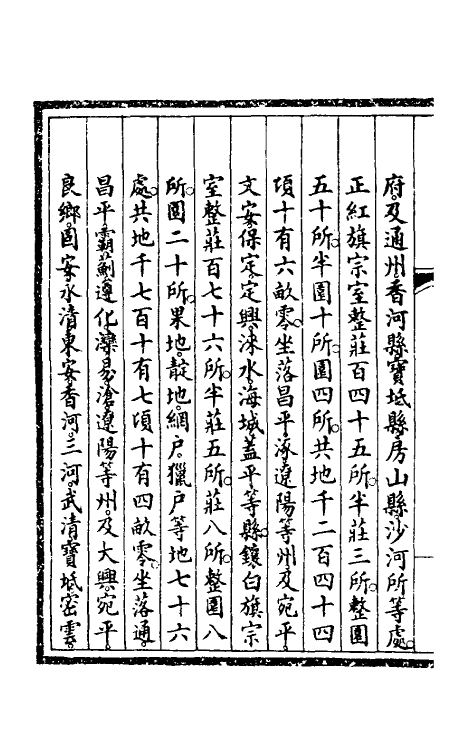 府及通州香河縣寶坻縣房山縣沙河所等處
正紅旗宗室整莊百四十五所半莊三所整園
五十所半園十所園四所共地千二百四十四
頃十有六畝零坐落昌平涿遼陽等州及宛平
文安保定定興淶水海城蓋平等縣鑲白旗宗
室整莊百七十六所半莊五所莊八所整園八
所園二十所果地靛地網戶獵戶等地七十六
處共地千七百十有七頃十有四畝零坐落通
昌平霸薊遵化灤易滄遼陽等州及大興宛平
良鄉固安永清東安香河三河武清寶坻密雲